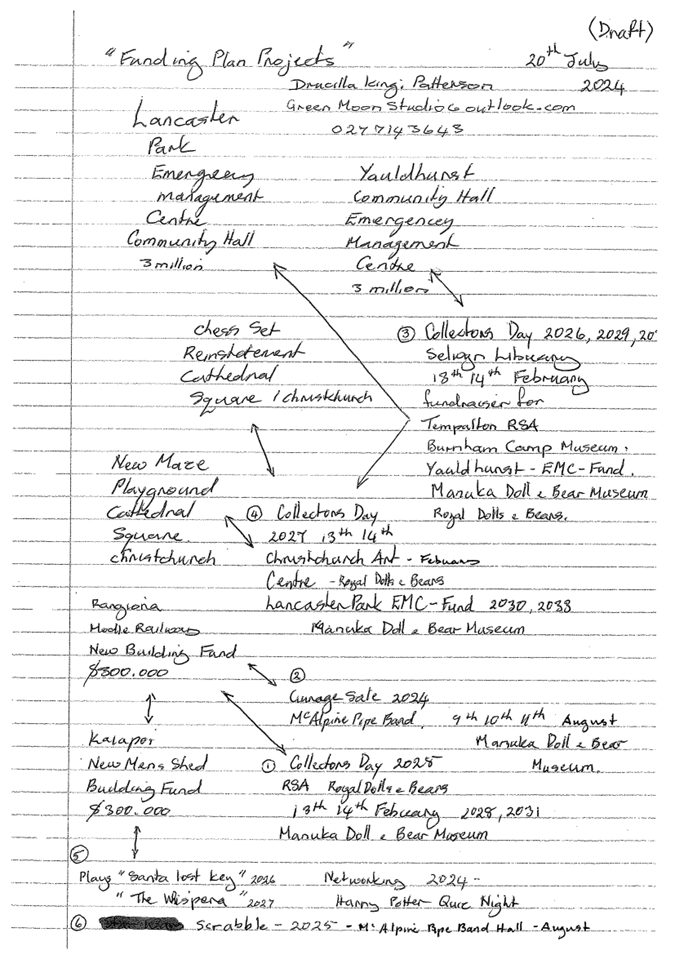 (Draft)
"Funding Plan Projects"
20th July
2024
Drucilla King; Patterson
GreenMoonStudio@outlook.com
0277143643
Lancaster
Park
Emergrecy
management
Centre
Community Hall
3 million
Yauldhurst
Community Hall
Emergencey
Management
Centre
3 million
Chess Set
Reinstatement
Cathedral
Square / Christchurch
③ Collectors Day 2026, 2029, 20
Selwyn Library
13th 14th February
fundraiser for
Tempalton RSA
Burnham Camp Museum.
Yauldhurst - EMC - Fund.
Manuka Doll & Bear Museum
Royal Dolls & Bears.
New Maze
Playground
Cathedral
Square
Christchurch
④ Collectors Day
2027 13th 14th
Christchurch Art - February
Centre - Royal Dolls & Bears
Lancaster Park EMC - Fund 2030, 2033
Manuka Doll & Bear Museum
Rangiora
Modle Railways
New Building Fund
$300.000
②
Garage Sale 2024
McAlpine Pipe Band 9th 10th 11th August
Manuka Doll & Bear
Museum.
Kaiapoi
New Mens Shed
Building Fund
$300.000
① Collectors Day 2025
RSA Royal Dolls & Bears
13th 14th February 2028, 2031
Manuka Doll & Bear Museum
⑤
Plays "Santa lost key" 2026
"The Wispera" 2027
Networking 2024 -
Harry Potter Quie Night
⑥ Scrabble - 2025 - McAlpine Pipe Band Hall - August